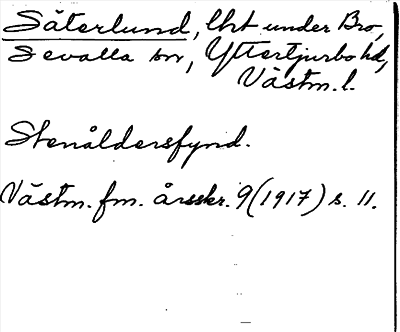 Säterlund, lht under Bro,
Sevalla sn, Yttertjurbo hd,
Västm. l.
Stenåldersfynd.
Västm. fm. årsskr. 9 (1917) s. 11.